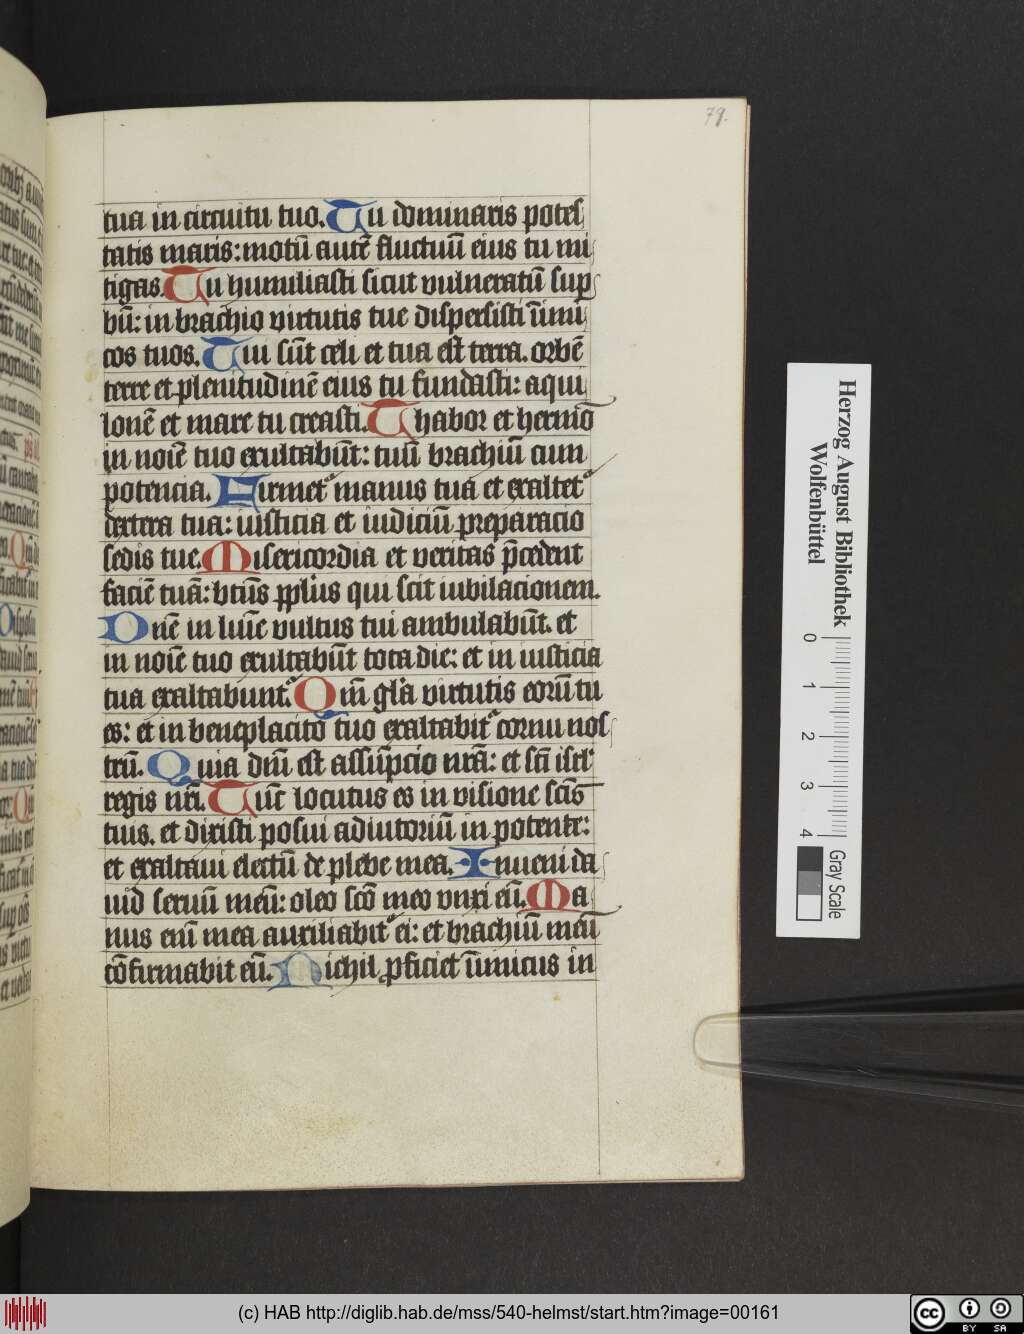 79.
tua in circuitu tuo. Tu dominaris potes
tatis maris: motū autē fluctuū eius tu mi
tigas. Tu humiliasti sicut vulneratū sup
bū: in brachio virtutis tue dispersisti inimi
cos tuos. Tui sūt celi et tua est terra. orbē
terre et plenitudinē eius tu fundasti: aqui
lonē et mare tu creasti. Thabor et hermō
in noīe tuo exultabūt: tuū brachiū cum
potencia. Firmet᷑ manus tua et exaltet᷑
dextera tua: iusticia et iudiciū preparacio
sedis tue. Misericordia et veritas p̄cedent
faciē tuā: btūs pplūs qui scit iubilacionem.
Dne in lumīe vultus tui ambulabūt. et
in noīe tuo exultabūt tota die: et in iusticia
tua exaltabunt᷑. Qm̄ glā virtutis eorū tu
es: et in beneplacito tuo exaltabit᷑ cornu nos
trū. Quia dn̄i est assūpcio nrā: et sc̄i isrl
regis nr̄i. Tūc locutus es in visione scīs
tuis. et dixisti posui adiutoriū in potente:
et exaltaui electū de plebe mea. Inueni da
uid seruū meū: oleo scō meo vnxi eū. Ma
nus enī mea auxiliabit᷑ ei: et brachiū meū
cōfirmabit eū. Nichil pficiet inimicus in
Herzog August Bibliothek
Wolfenbüttel
0 1 2 3 4
Gray Scale
(c) HAB http://diglib.hab.de/mss/540-helmst/start.htm?image=00161
cc BY SA